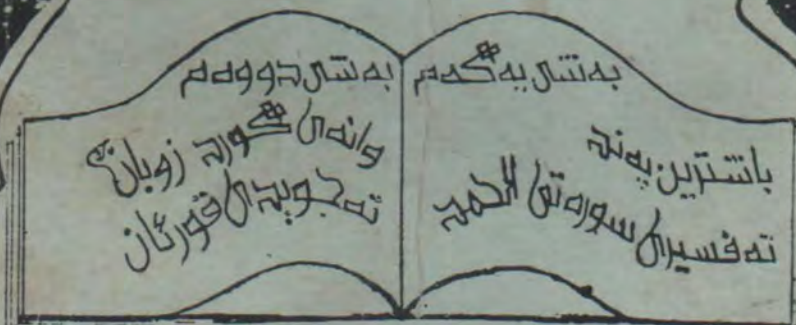 بەشی یەکەم
باشترین پەند
تەفسیری سورەتی الحمد
بەشی دووەم
وانەی کورد زوبان
تەجویدی قورئان